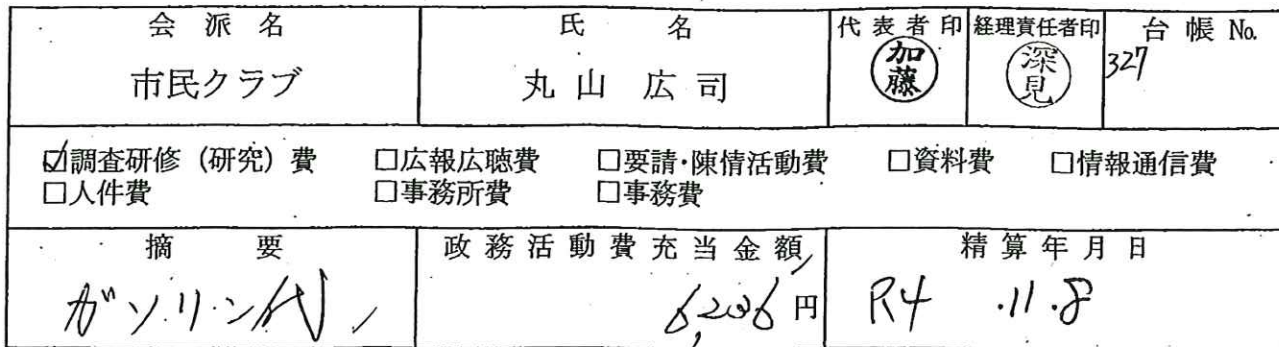 会派名 氏名 代表者印 経理責任者印 台帳 No.
市民クラブ 丸山 広司 加藤 深見 327
☑調査研修(研究)費 □広報広聴費 □要請・陳情活動費 □資料費 □情報通信費
□人件費 □事務所費 □事務費
摘要 政務活動費充当金額 精算年月日
ガソリン代 円 R4.11.8